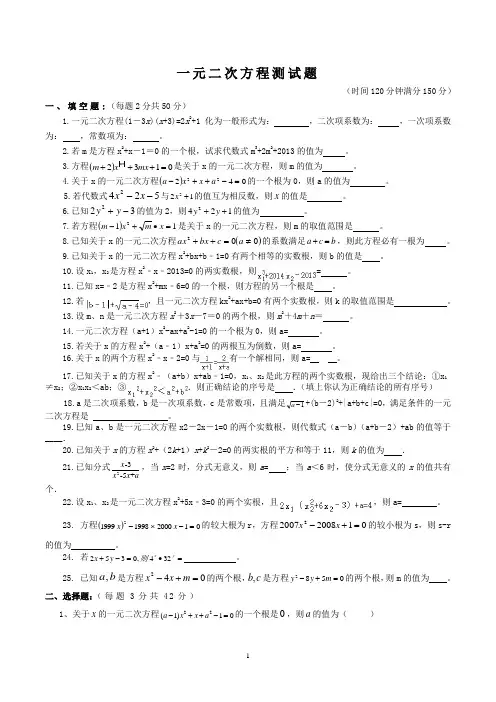 一元二次方程测试题
（时间120分钟满分150分）
一、填空题：（每题2分共50分）
1.一元二次方程(1-3x)(x+3)=2x²+1 化为一般形式为： ，二次项系数为： ，一次项系数
为： ，常数项为： 。
2.若m是方程x²+x-1＝0的一个根，试求代数式m³+2m²+2013的值为 。
3.方程(m+2)x^|m|+3mx+1=0是关于x的一元二次方程，则m的值为 。
4.关于x的一元二次方程(a-2)x²+x+a²-4=0的一个根为0，则a的值为 。
5.若代数式4x²-2x-5与2x²+1的值互为相反数，则x的值是 。
6.已知2y²+y-3的值为2，则4y²+2y+1的值为 。
7.若方程(m-1)x²+√m•x=1是关于x的一元二次方程，则m的取值范围是 。
8.已知关于x的一元二次方程ax²+bx+c=0(a≠0)的系数满足a+c=b，则此方程必有一根为 。
9.已知关于x的一元二次方程x²+bx+b﹣1=0有两个相等的实数根，则b的值是 。
10.设x₁，x₂是方程x²﹣x﹣2013=0的两实数根，则x₁³+2014x₂-2013= 。
11.已知x=﹣2是方程x²+mx﹣6=0的一个根，则方程的另一个根是 。
12.若|b-1|+√a-4=0，且一元二次方程kx²+ax+b=0有两个实数根，则k的取值范围是 。
13.设m、n是一元二次方程x²＋3x－7＝0的两个根，则m²＋4m＋n＝ 。
14.一元二次方程（a+1）x²-ax+a²-1=0的一个根为0，则a= 。
15.若关于x的方程x²+（a﹣1）x+a²=0的两根互为倒数，则a= 。
16.关于x的两个方程x²﹣x﹣2=0与1/x+1=2/x+a有一个解相同，则a= 。
17.已知关于x的方程x²﹣（a+b）x+ab﹣1=0，x₁、x₂是此方程的两个实数根，现给出三个结论：①x₁
≠x₂；②x₁x₂＜ab；③x₁²+x₂²＜a²+b²．则正确结论的序号是 ．（填上你认为正确结论的所有序号）
18.a是二次项系数，b是一次项系数，c是常数项，且满足√a-1+(b－2)²+|a+b+c|=0，满足条件的一元
二次方程是 。
19.已知a、b是一元二次方程x2－2x－1=0的两个实数根，则代数式（a－b）（a+b－2）+ab的值等于
．
20.已知关于x的方程x²+（2k+1）x+k²－2=0的两实根的平方和等于11，则k的值为 ．
21.已知分式x-3/x²-5x+a，当x=2时，分式无意义，则a= ；当a＜6时，使分式无意义的x的值共有
个．
22.设x₁、x₂是一元二次方程x²+5x﹣3=0的两个实根，且2x₁（x₂²+6x₂-3）+a=4，则a= 。
23. 方程(1999x)²-1998×2000x-1=0的较大根为r，方程2007x²-2008x+1=0的较小根为s，则s-r
的值为 。
24. 若2x+5y-3=0,则4ˣ•32ʸ= 。
25. 已知a,b是方程x²-4x+m=0的两个根，b,c是方程y²-8y+5m=0的两个根，则m的值为 。
二、选择题：（每题 3分共 42分）
1、关于x的一元二次方程(a-1)x²+x+a²-1=0的一个根是0，则a的值为（ ）
1